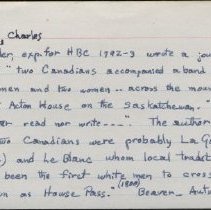 Charles
der, exp. for HBC 1792-3 wrote a jou
" two Canadians accompanied a band
men and two women -- across the mou
" Acton House on the Saskatchewan. "
er read nor write --- ". The author
two Canadians were probably La Ga
) and Le Blanc whom local tradit
been the first white men to cross
n as Howse Pass. (1800) Beaver Aut